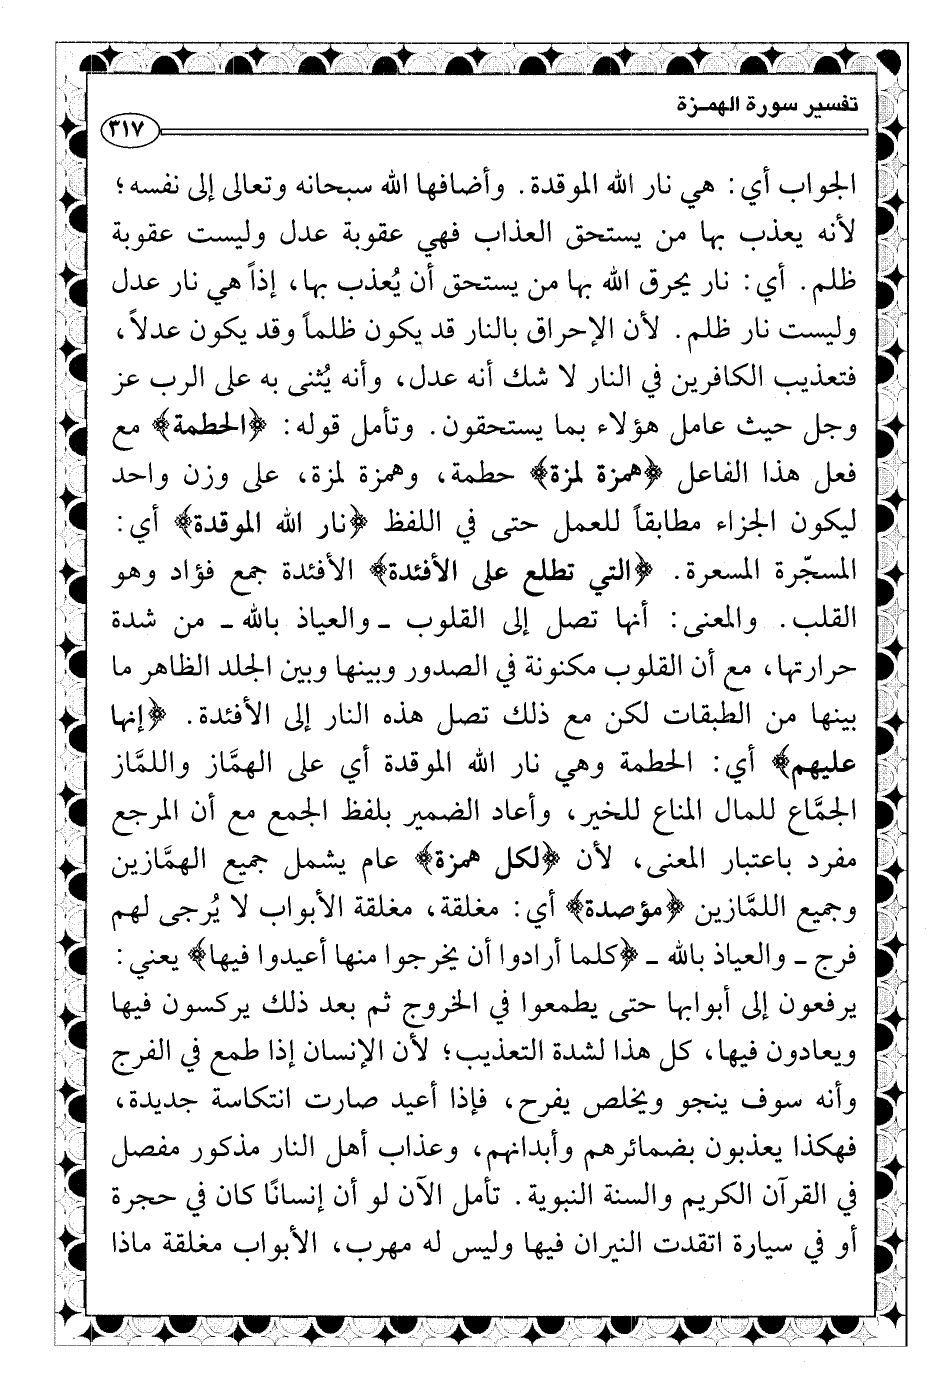 تفسير سورة الهمـزة
٣١٧
الجواب أي: هي نار الله الموقدة. وأضافها الله سبحانه وتعالى إلى نفسه؛
لأنه يعذب بها من يستحق العذاب فهي عقوبة عدل وليست عقوبة
ظلم. أي: نار يحرق الله بها من يستحق أن يُعذب بها، إذاً هي نار عدل
وليست نار ظلم. لأن الإحراق بالنار قد يكون ظلماً وقد يكون عدلاً،
فتعذيب الكافرين في النار لا شك أنه عدل، وأنه يُثنى به على الرب عز
وجل حيث عامل هؤلاء بما يستحقون. وتأمل قوله: ﴿الحطمة﴾ مع
فعل هذا الفاعل ﴿همزة لمزة﴾ حطمة، وهمزة لمزة، على وزن واحد
ليكون الجزاء مطابقاً للعمل حتى في اللفظ ﴿نار الله الموقدة﴾ أي:
المسجّرة المسعرة. ﴿التي تطلع على الأفئدة﴾ الأفئدة جمع فؤاد وهو
القلب. والمعنى: أنها تصل إلى القلوب ـ والعياذ بالله ـ من شدة
حرارتها، مع أن القلوب مكنونة في الصدور وبينها وبين الجلد الظاهر ما
بينها من الطبقات لكن مع ذلك تصل هذه النار إلى الأفئدة. ﴿إنها
عليهم﴾ أي: الحطمة وهي نار الله الموقدة أي على الهمَّاز واللمَّاز
الجمَّاع للمال المناع للخير، وأعاد الضمير بلفظ الجمع مع أن المرجع
مفرد باعتبار المعنى، لأن ﴿لكل همزة﴾ عام يشمل جميع الهمَّازين
وجميع اللمَّازين ﴿مؤصدة﴾ أي: مغلقة، مغلقة الأبواب لا يُرجى لهم
فرج ـ والعياذ بالله ـ ﴿كلما أرادوا أن يخرجوا منها أعيدوا فيها﴾ يعني:
يرفعون إلى أبوابها حتى يطمعوا في الخروج ثم بعد ذلك يركسون فيها
ويعادون فيها، كل هذا لشدة التعذيب؛ لأن الإنسان إذا طمع في الفرج
وأنه سوف ينجو ويخلص يفرح، فإذا أعيد صارت انتكاسة جديدة،
فهكذا يعذبون بضمائرهم وأبدانهم، وعذاب أهل النار مذكور مفصل
في القرآن الكريم والسنة النبوية. تأمل الآن لو أن إنسانًا كان في حجرة
أو في سيارة اتقدت النيران فيها وليس له مهرب، الأبواب مغلقة ماذا